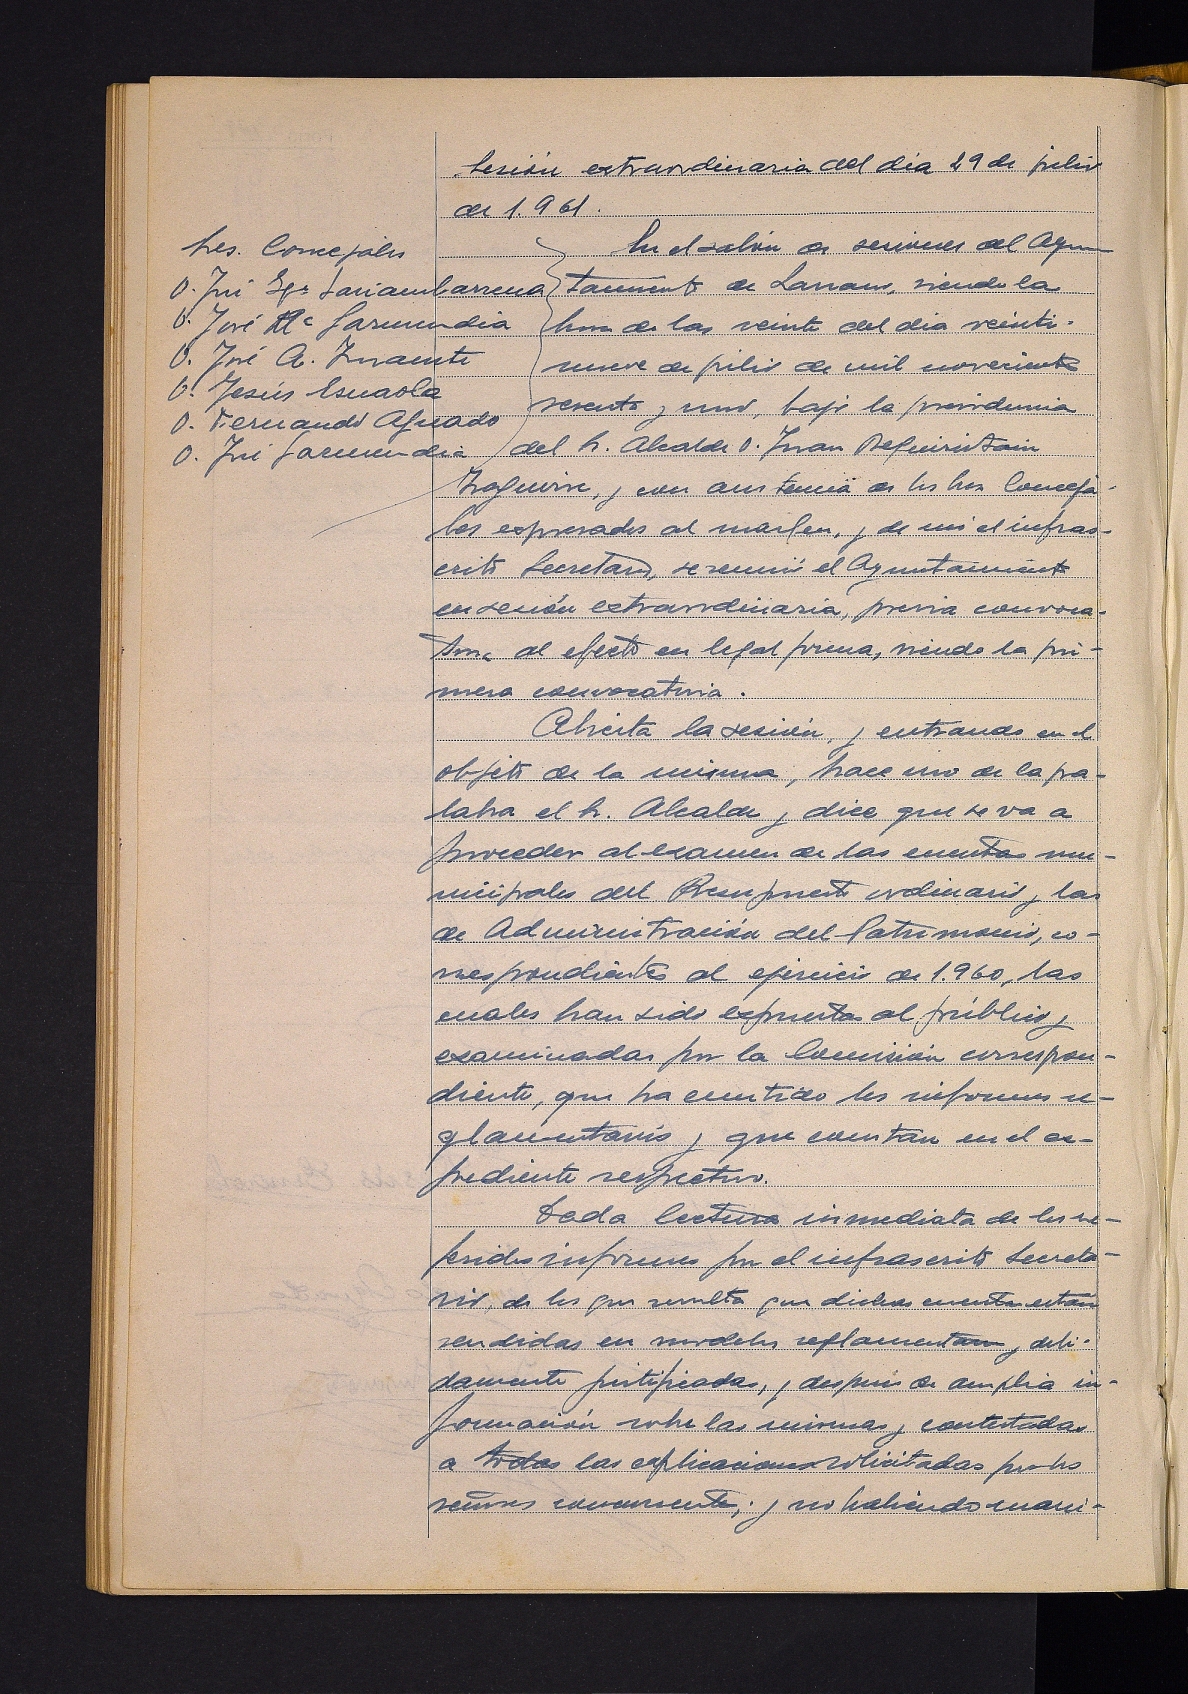 Sesión extraordinaria del dia 29 de julio
de 1.961.
Sres. Concejales
D. José Igº Sariambarrena
D. José Mª Garmendia
D. José A. Iruaente
D. Jesús Esnaola
D. Fernando Aguado
D. José Garmendia
En el salón de sesiones del Ayun
tamiento de Larraun, siendo la
hora de las veinte del dia veinti-
nueve de julio de mil novecientos
sesenta y uno, bajo la presidencia
del Sr. Alcalde D. Juan Beguiristain
Izaguirre, y con asistencia de los Sres Conceja-
les expresados al margen, y de mi el infras-
crito Secretario, se reunió el Ayuntamiento
en sesión extraordinaria, previa convoca-
toria al efecto en legal forma, siendo la pri-
mera convocatoria.
Abierta la sesión, y entrando en el
objeto de la misma, hace uso de la pa-
labra el Sr. Alcalde y dice que se va a
proceder al examen de las cuentas mu-
nicipales del Presupuesto ordinario y las
de Administración del Patrimonio, co-
rrespondientes al ejercicio de 1.960, las
cuales han sido expuestas al público y
examinadas por la Comisión correspon-
diente, que ha emitido los informes re-
glamentarios y que constan en el ex-
pediente respectivo.
Dada lectura inmediata de los re-
feridos informes por el infrascrito Secreta-
rio, de los que resulta que dichas cuentas están
rendidas en modelos reglamentarios y debi-
damente justificadas, y despues de amplia in-
formación sobre las mismas y contestadas
a todas las explicaciones solicitadas por los
señores concurrentes; y no habiendo mani-